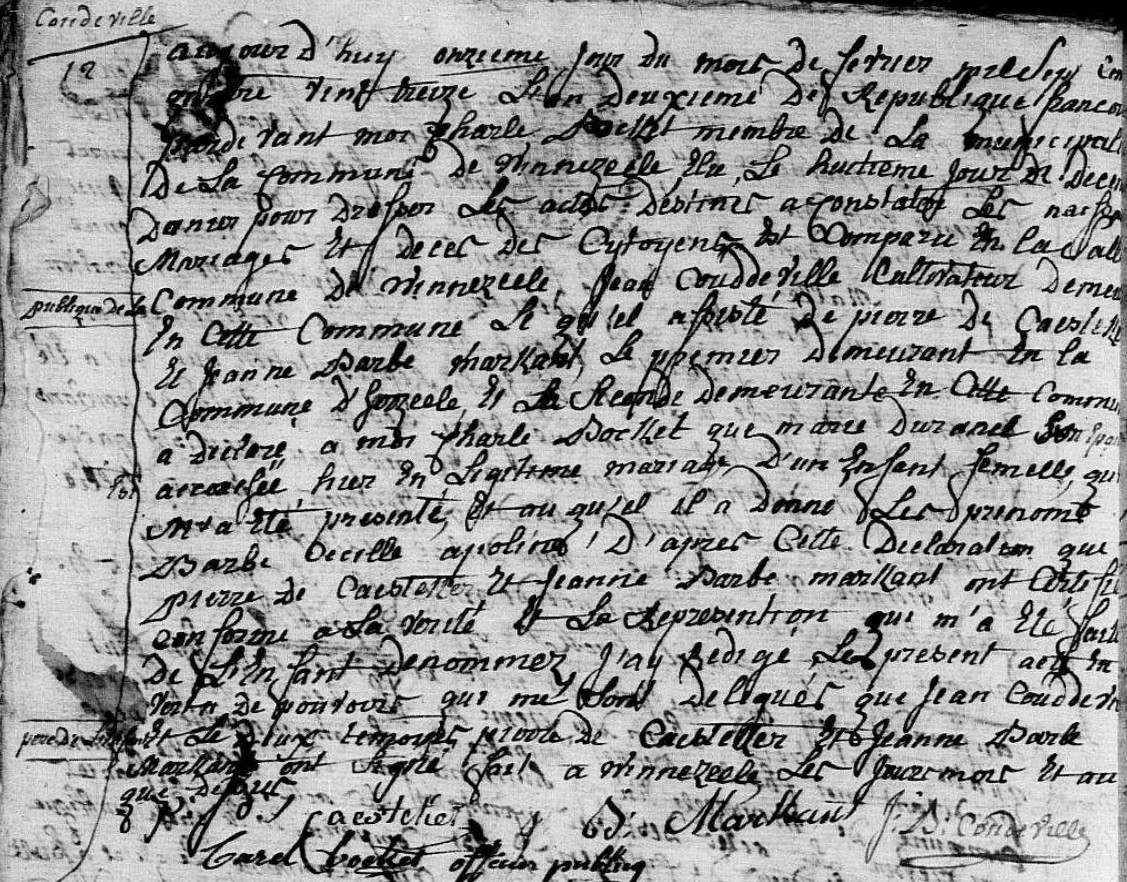 Condeville
12
aujour d'huy onzieme jour du mois de fevrier mil sept cen
quatre vint treize L'an deuxieme De Republique francoi
pardevant moi Charle Bocket membre de La municipali
De La Commune De Winnezeele Elu, Le huitieme Jour De Decem
Danier pour Dresser Les actes Destines a Constater Les naisse
Mariages Et Deces des Cytoyens Est Comparu En la Salle
publique de La Commune De Winnezeele, Jean Couddeville Cultivateur Demeu
En Cette Commune Le qu'el assisté De pierre De Caesteke
Et Jeanne Barbe Markant, Le premier Demeurant En la
Commune D' Et La Seconde Demeurante En Cette Commu
a Declaré a moi Charle Bocket que marie Duranel Son Epou
est accouchée, hier En Legitime mariage D'un Enfant femelle, qu
M'a Eté presenté, Et au qu'el il a Donné Les prenoms
Barbe Cecille apoline, D'apres Cette Declaration que
pierre De Caesteker Et Jeanne Barbe markant ont Certifié
conforme a La Verité Et La Representtion qui m'a Eté faite
De L'Enfant Denommez J'ay Redigé Les present acte En
Vertu De pouvoirs qui me Sont Delegués que Jean Couddevi
pere De L'enfant Et Le Deux temoins pierre De Caesteker Et Jeanne Barbe
Markant ont Signé fait a Winnezeele Les Jour mois Et an
que Dessus
P. J. Caesteker J B: Markant J: B: Condeville
Carel Bocket officier publicq